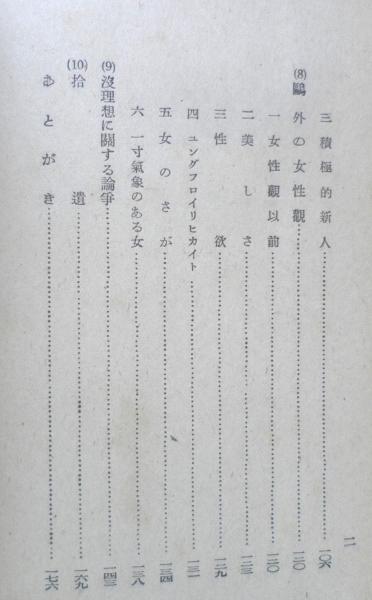 三 積極的新人……一〇六
(8) 鷗外の女性觀……一二〇
一 女性觀以前……一二〇
二 美しさ……一二三
三 性欲……一二九
四 ユングフロイリヒカイト……一三一
五 女のさが……一三四
六 一寸氣象のある女……一三八
(9) 沒理想に關する論爭……一四三
(10) 拾遺……一六九
あとがき……一七六
二